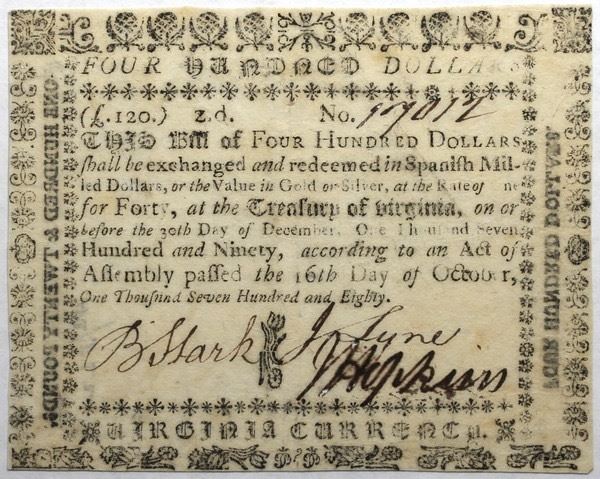 FOUR HUNDRED DOLLARS
(£.120.) z.d. No. 17012
THIS Bill of FOUR HUNDRED DOLLARS
shall be exchanged and redeemed in Spanish Mil-
led Dollars, or the Value in Gold or Silver, at the Rate of ne
for Forty, at the Treasury of Virginia, on or
before the 30th Day of December, One Thousand Seven
Hundred and Ninety, according to an Act of
Assembly passed the 16th Day of October,
One Thousand Seven Hundred and Eighty.
B Stark Jn Lyne
J Hopkins
VIRGINIA CURRENCY.
ONE HUNDRED & TWENTY POUNDS.
FOUR HUNDRED DOLLARS